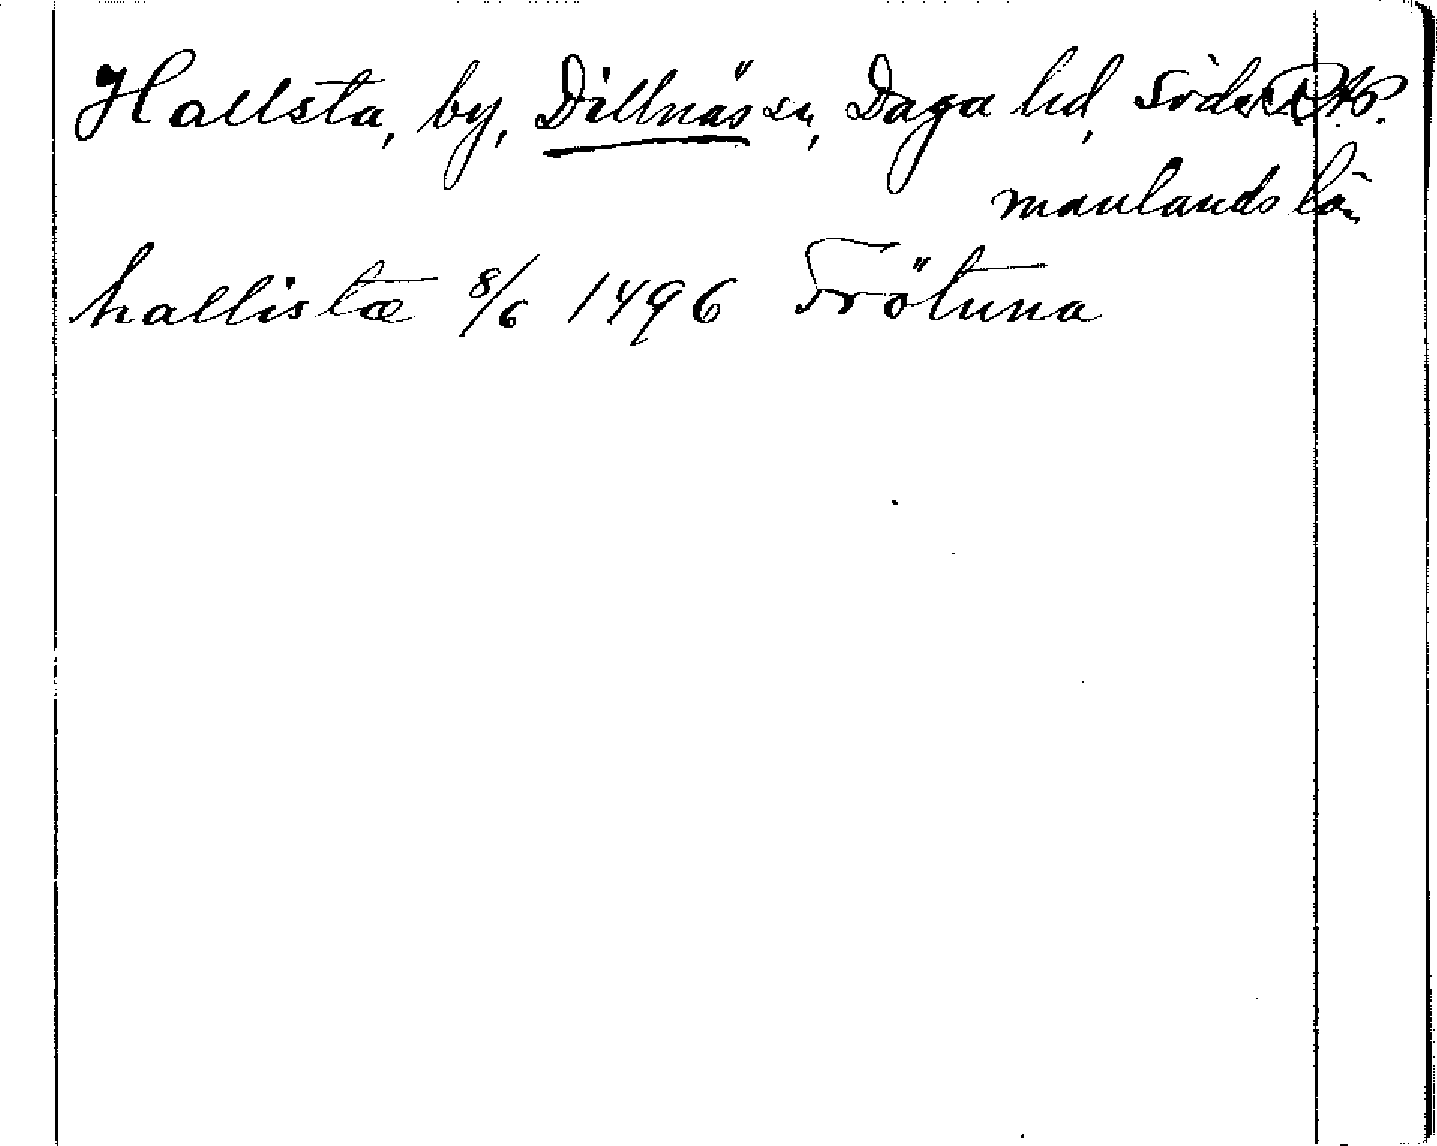 Hallsta, by, Dillnäs sn, Daga hd, Söder
manlands län
hallistæ 8/6 1496 Frötuna